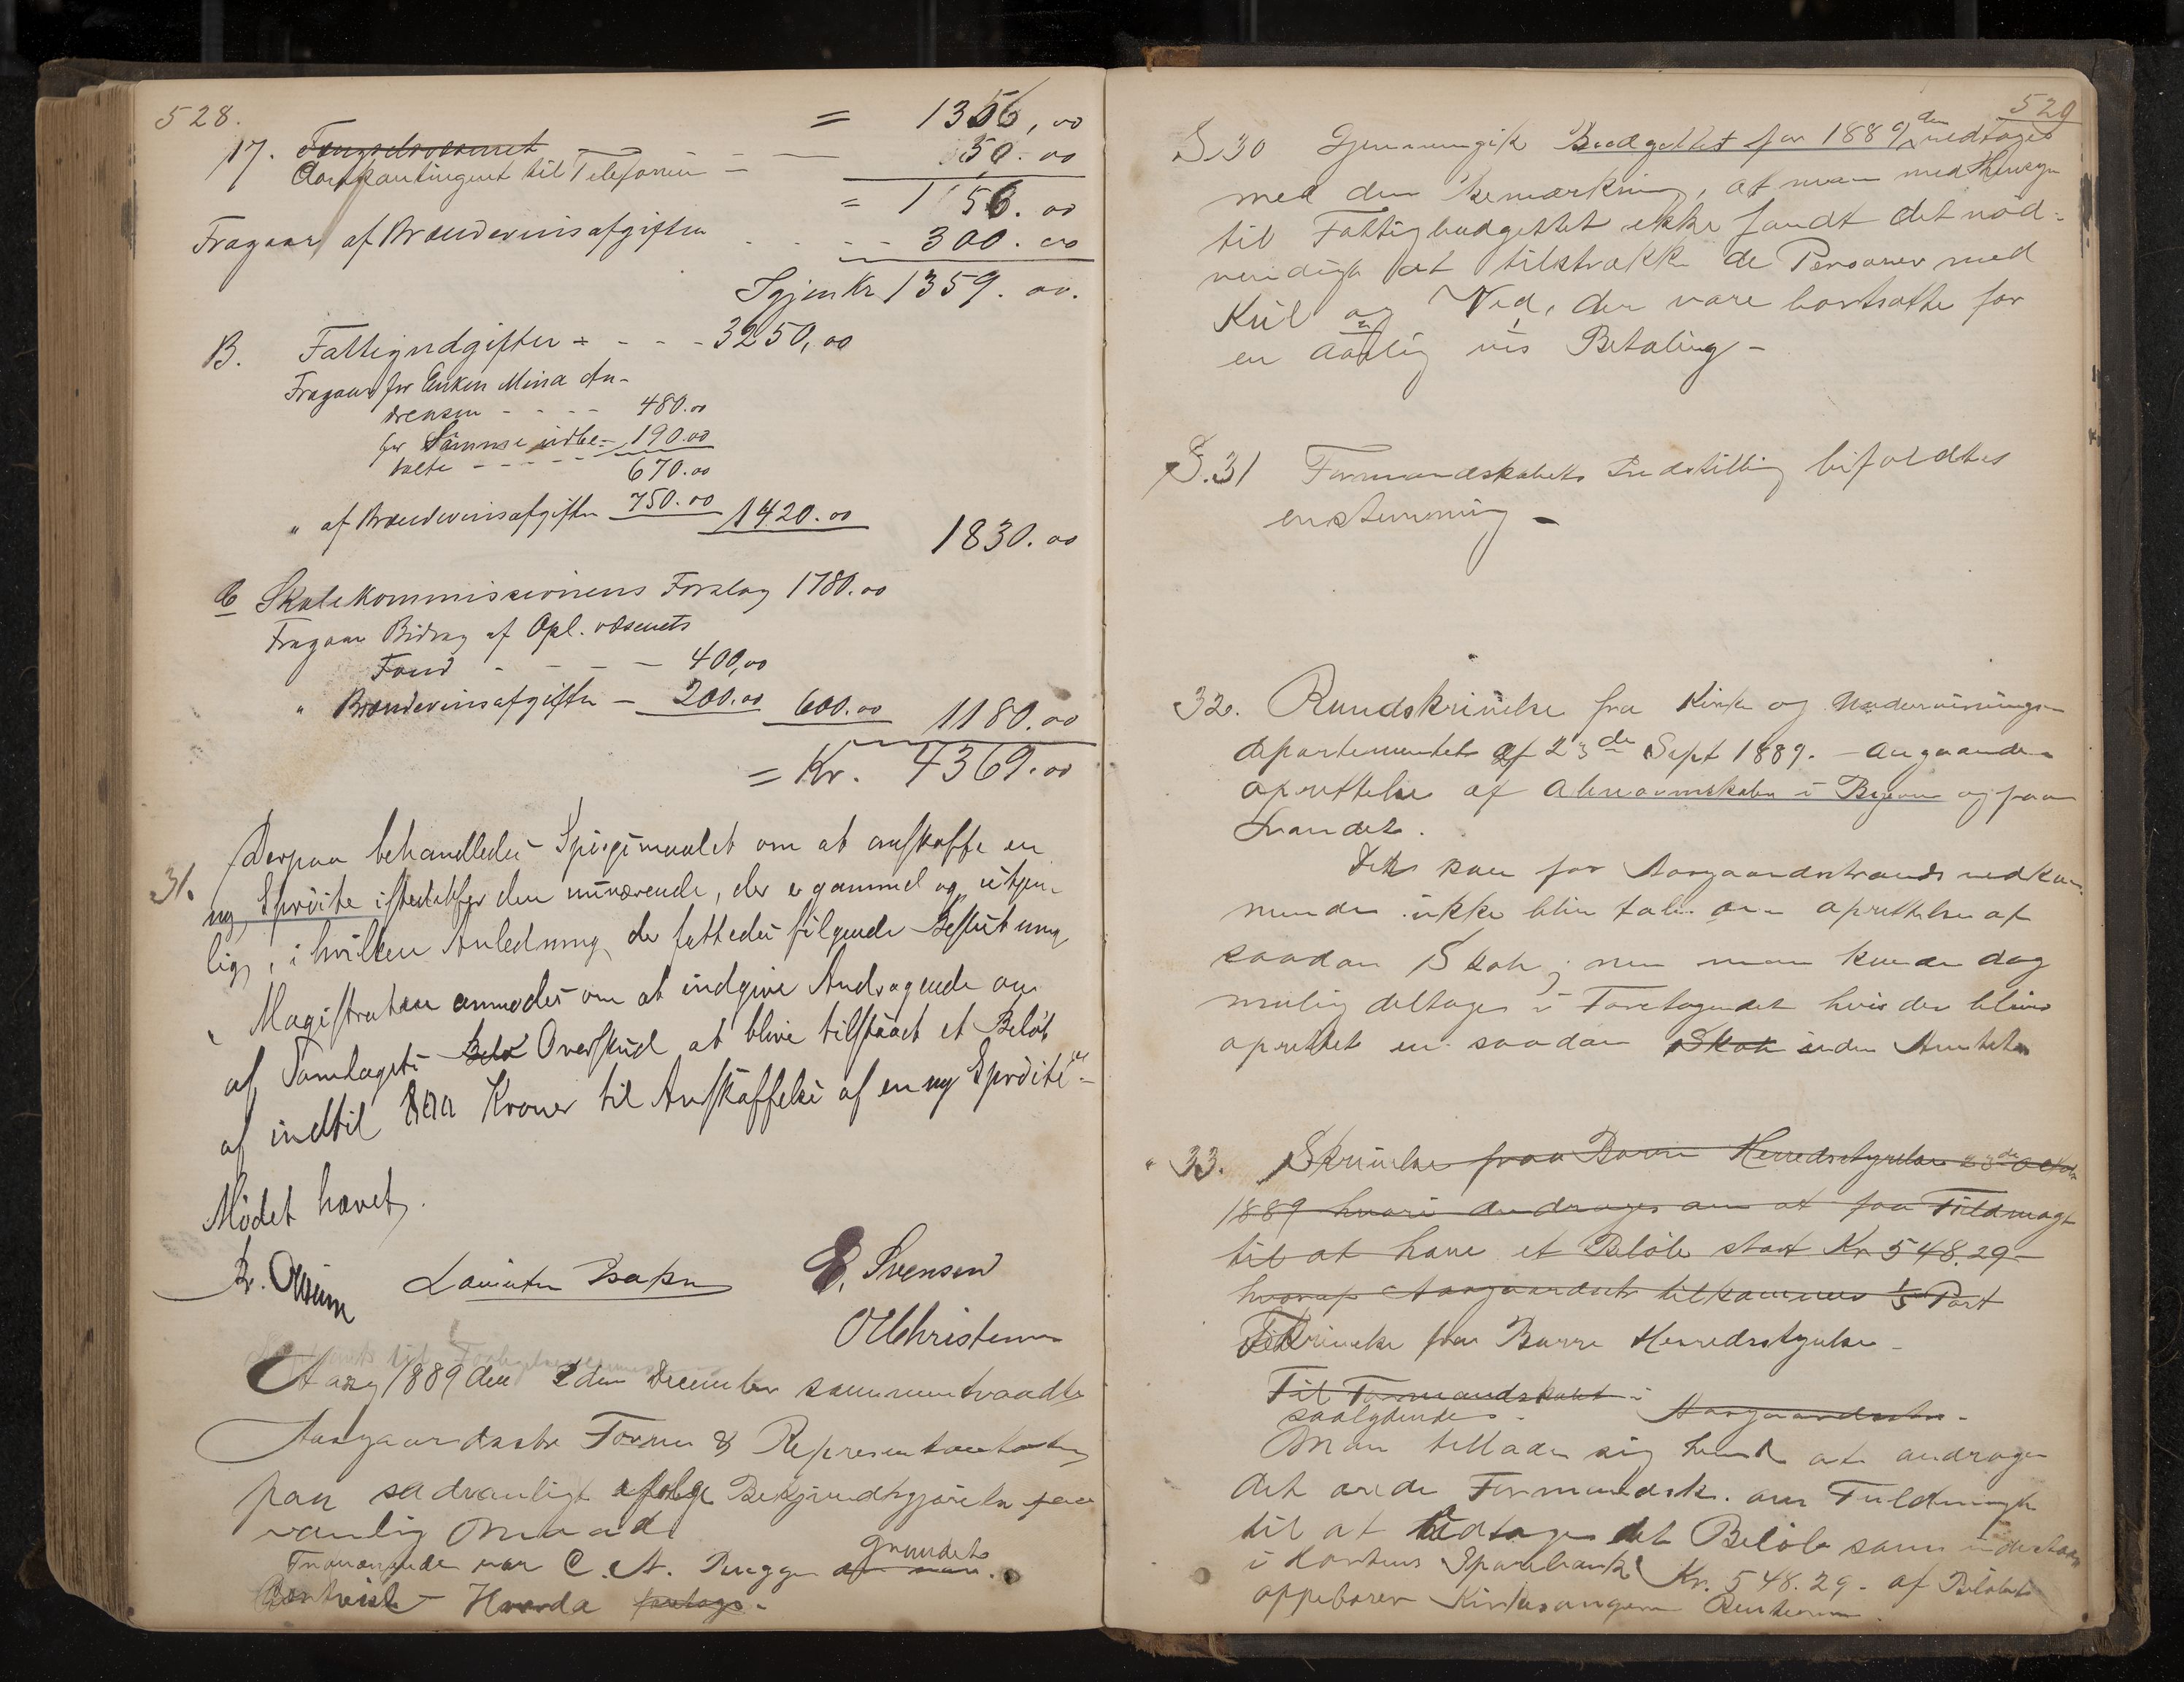 528.
= 1356,00
17. Fængselsvæsenet
Aarskontingent til Telefonen — 50.00
= 1 56.00
Fragaar af Brændevinsafgiften - - - - 300.00
Igjen Kr 1359.00.
B. Fattigudgifter - - - 3250,00
Fragaar for Enken Mina An-
dreasen - - - - 480.00
for Samme udbe- 190.00
talte - - - - - 670.00
" af Brændevinsafgiften 750.00 1420.00
1830.00
C Skolekommissionens Forslag 1780.00
Fragaar Bidrag af Opl. væsenets
Fond - - - - 400,00
" Brændevinsafgiften - 200.00 600.00 1180.00
= Kr. 4369.00
31. Derpaa behandledes Spørgsmaalet om at anskaffe en
ny Sprøite istedetfor den nuværende, der er gammel og utjen-
lig, i hvilken Anledning der fattedes følgende Beslutning
" Magistraten anmodes om at indgive Andragende om
af Samlagets Belø Overskud at blive tilstaaet et Beløb
af indtil 800 Kroner til Anskaffelse af en ny Sprøite"-
Mødet hævet.
Br. Olsen Lauritz Isaksen E. Svensen
O M Christensen
Aar 1889 den 2den December sammentraadte
Aasgaardstr Form & Repræsentanter
paa sædvanligt ifølge Bekjendtgjørelse paa
vanlig Maade
Fraværende var C. A. Bugge grundet
Bortreist - Hvorda foretoges -
529
S.30 Gjennemgik Budgettet for 1889 den vedtoges
med den Bemærkning, at man med Hensyn
til Fattigbudgettet ikke fandt det nød-
vendigt at tilstrække de Personer med
Kul og Ved, der vare bortsatte for
en aarlig vis Betaling -
S.31 Formandskabets Indstilling bifaldtes
enstemmig -
32. Rundskrivelse fra Kirke og Undervisnings-
departementet af 23de Sept 1889. - angaaende
oprettelse af Abnormskoler i Byerne og paa
Landet.
Der kan for Aasgaardstrands vedkom-
mende ikke blive tale om oprettelse af
saadan Skole; men man kunde dog
mulig deltage i Foretagendet hvis der blives
oprettet en saadan Skole inden Amtet
33. Skrivelse fra Borre Herredsstyrelse 23de Octob
1889 hvori andrages om at faa Fuldmagt
til at hæve et Beløb stort Kr 548.29-
hvoraf Aasgaardstr tilkommer 1/5 Part
Skrivelse fra Borre Herredsstyrelse -
Til Formandskabet i
saalydende - Aasgaardstr -
Man tillader sig herved at andrage
det ærede Formandsk. om Fuldmagt
til at udtage det Beløb som indestaar
i Hortens Sparebank Kr. 548.29 - af Beløbet
oppebærer Kirkesangeren Renterne.